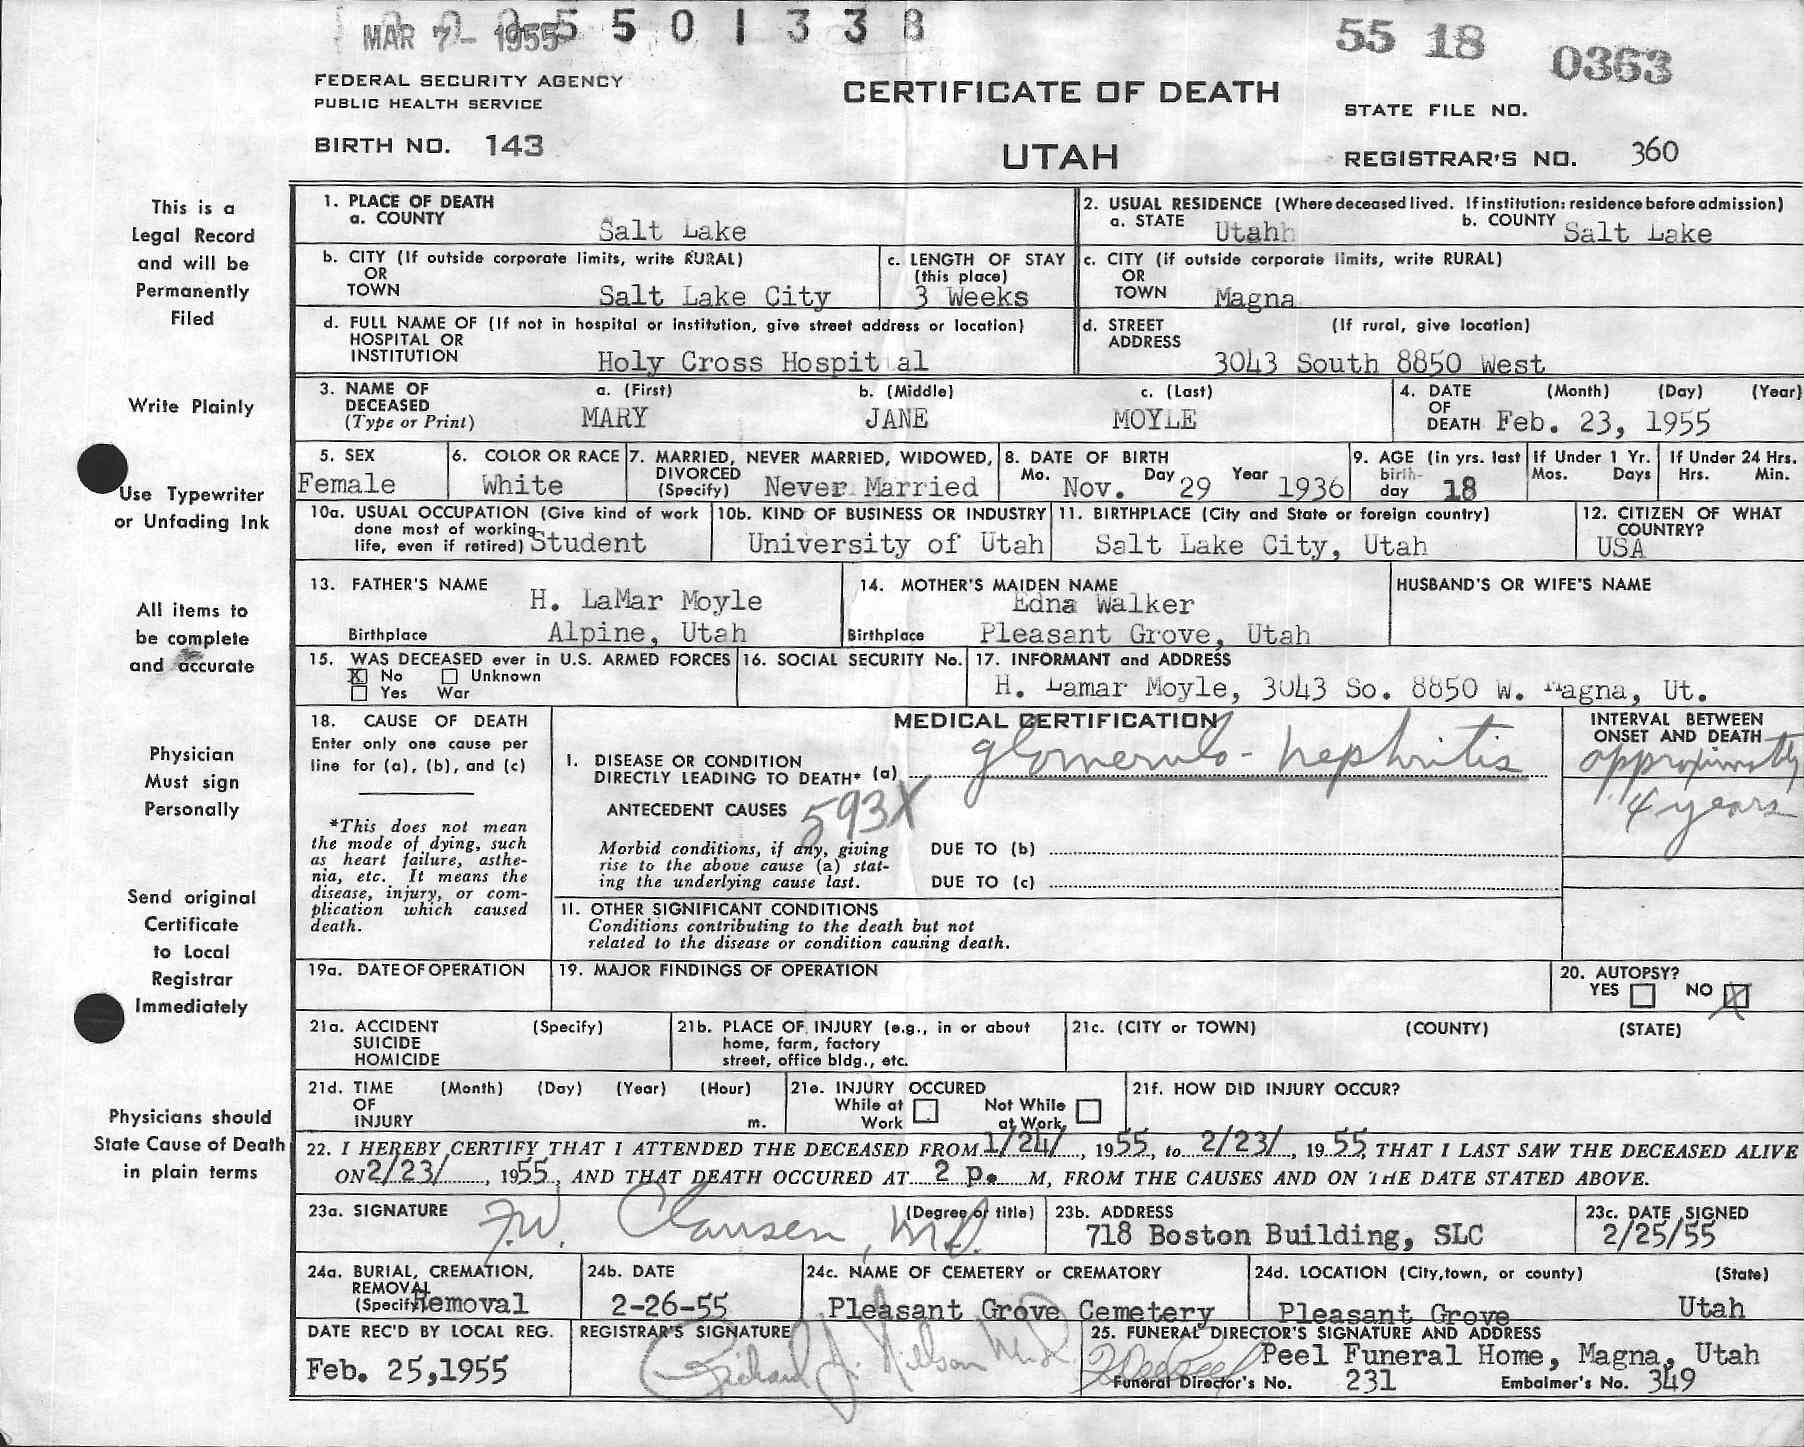 MAR 7 - 1955 5 5 0 1 3 3 8
55 18 0363
FEDERAL SECURITY AGENCY
PUBLIC HEALTH SERVICE
CERTIFICATE OF DEATH
STATE FILE NO.
BIRTH NO. 143
UTAH
REGISTRAR'S NO. 360
This is a
Legal Record
and will be
Permanently
Filed
Write Plainly
Use Typewriter
or Unfading Ink
All items to
be complete
and accurate
Physician
Must sign
Personally
Send original
Certificate
to Local
Registrar
Immediately
Physicians should
State Cause of Death
in plain terms
1. PLACE OF DEATH
a. COUNTY
Salt Lake
2. USUAL RESIDENCE (Where deceased lived. If institution: residence before admission)
a. STATE Utahh b. COUNTY Salt Lake
b. CITY (If outside corporate limits, write RURAL)
OR
TOWN Salt Lake City
c. LENGTH OF STAY
(this place)
3 Weeks
c. CITY (if outside corporate limits, write RURAL)
OR
TOWN Magna
d. FULL NAME OF (If not in hospital or institution, give street address or location)
HOSPITAL OR
INSTITUTION Holy Cross Hospit al
d. STREET (If rural, give location)
ADDRESS
3043 South 8850 West
3. NAME OF a. (First) b. (Middle) c. (Last)
DECEASED
(Type or Print) MARY JANE MOYLE
4. DATE (Month) (Day) (Year)
OF
DEATH Feb. 23, 1955
5. SEX
Female
6. COLOR OR RACE
White
7. MARRIED, NEVER MARRIED, WIDOWED,
DIVORCED
(Specify) Never Married
8. DATE OF BIRTH
Mo. Nov. Day 29 Year 1936
9. AGE (in yrs. last
birth-
day 18
If Under 1 Yr.
Mos. Days
If Under 24 Hrs.
Hrs. Min.
10a. USUAL OCCUPATION (Give kind of work
done most of working
life, even if retired) Student
10b. KIND OF BUSINESS OR INDUSTRY
University of Utah
11. BIRTHPLACE (City and State or foreign country)
Salt Lake City, Utah
12. CITIZEN OF WHAT
COUNTRY?
USA
13. FATHER'S NAME
H. LaMar Moyle
Birthplace Alpine, Utah
14. MOTHER'S MAIDEN NAME
Edna Walker
Birthplace Pleasant Grove, Utah
HUSBAND'S OR WIFE'S NAME
15. WAS DECEASED ever in U.S. ARMED FORCES
X No Unknown
Yes War
16. SOCIAL SECURITY No.
17. INFORMANT and ADDRESS
H. Lamar Moyle, 3043 So. 8850 W. Magna, Ut.
18. CAUSE OF DEATH
Enter only one cause per
line for (a), (b), and (c)
*This does not mean
the mode of dying, such
as heart failure, asthe-
nia, etc. It means the
disease, injury, or com-
plication which caused
death.
MEDICAL CERTIFICATION
I. DISEASE OR CONDITION
DIRECTLY LEADING TO DEATH* (a) glomerulo-nephritis
ANTECEDENT CAUSES 593X
Morbid conditions, if any, giving
rise to the above cause (a) stat-
ing the underlying cause last.
DUE TO (b)
DUE TO (c)
II. OTHER SIGNIFICANT CONDITIONS
Conditions contributing to the death but not
related to the disease or condition causing death.
INTERVAL BETWEEN
ONSET AND DEATH
approximately
4 years
19a. DATE OF OPERATION
19. MAJOR FINDINGS OF OPERATION
20. AUTOPSY?
YES NO X
21a. ACCIDENT (Specify)
SUICIDE
HOMICIDE
21b. PLACE OF INJURY (e.g., in or about
home, farm, factory
street, office bldg., etc.
21c. (CITY or TOWN) (COUNTY) (STATE)
21d. TIME (Month) (Day) (Year) (Hour)
OF
INJURY m.
21e. INJURY OCCURED
While at Not While
Work at Work
21f. HOW DID INJURY OCCUR?
22. I HEREBY CERTIFY THAT I ATTENDED THE DECEASED FROM 1/24/, 1955, to 2/23/, 1955, THAT I LAST SAW THE DECEASED ALIVE
ON 2/23/, 1955, AND THAT DEATH OCCURED AT 2 p. M, FROM THE CAUSES AND ON THE DATE STATED ABOVE.
23a. SIGNATURE (Degree or title)
F.W. Clausen, M.D.
23b. ADDRESS
718 Boston Building, SLC
23c. DATE SIGNED
2/25/55
24a. BURIAL, CREMATION,
REMOVAL
(Specify) Removal
24b. DATE
2-26-55
24c. NAME OF CEMETERY or CREMATORY
Pleasant Grove Cemetery
24d. LOCATION (City, town, or county) (State)
Pleasant Grove Utah
DATE REC'D BY LOCAL REG.
Feb. 25,1955
REGISTRAR'S SIGNATURE
Richard J. Nelson M.D.
25. FUNERAL DIRECTOR'S SIGNATURE AND ADDRESS
Peel Funeral Home, Magna, Utah
Funeral Director's No. 231 Embalmer's No. 349